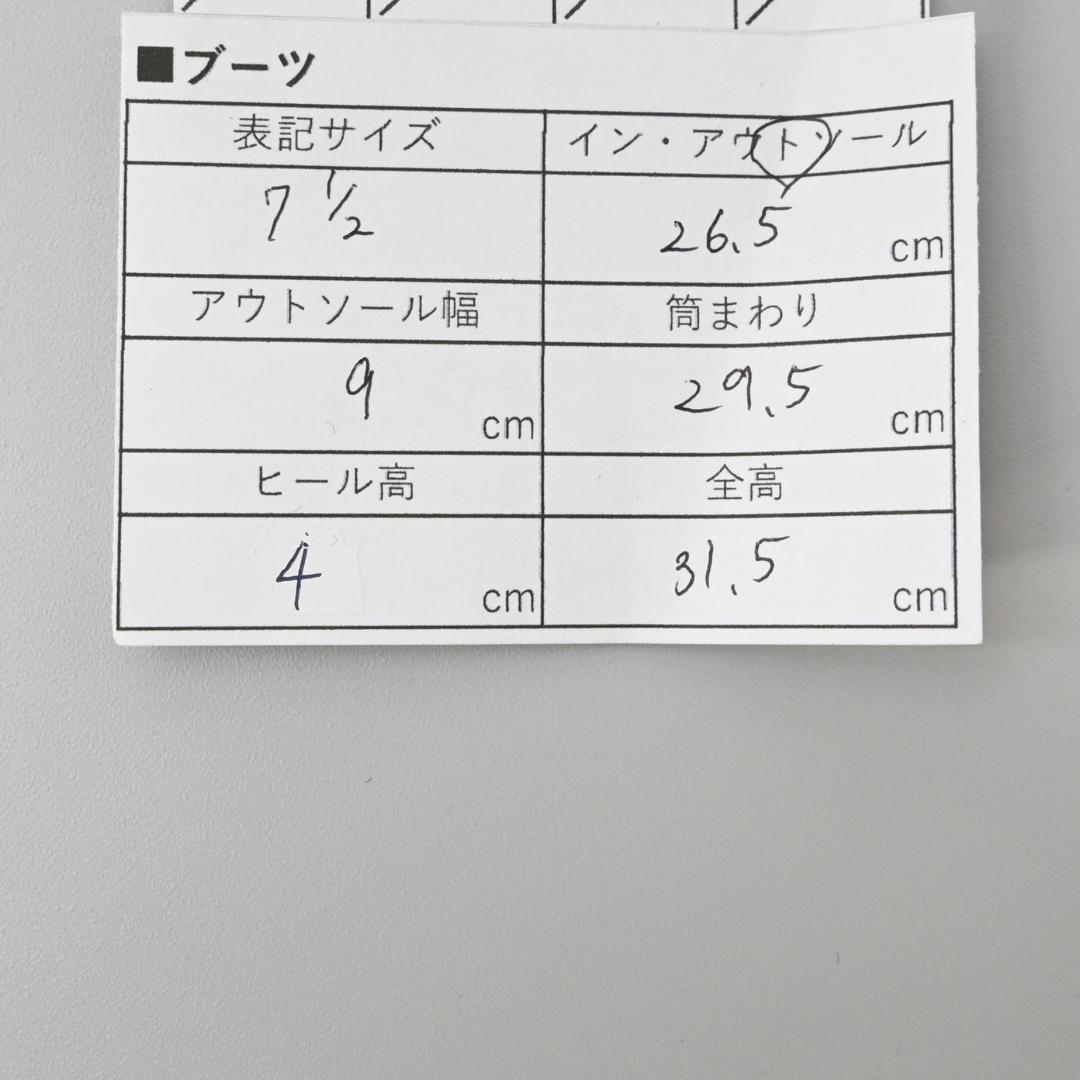 ■ブーツ
表記サイズ イン・アウトソール
7 1/2 26.5 cm
アウトソール幅 筒まわり
9 cm 29.5 cm
ヒール高 全高
4 cm 31.5 cm